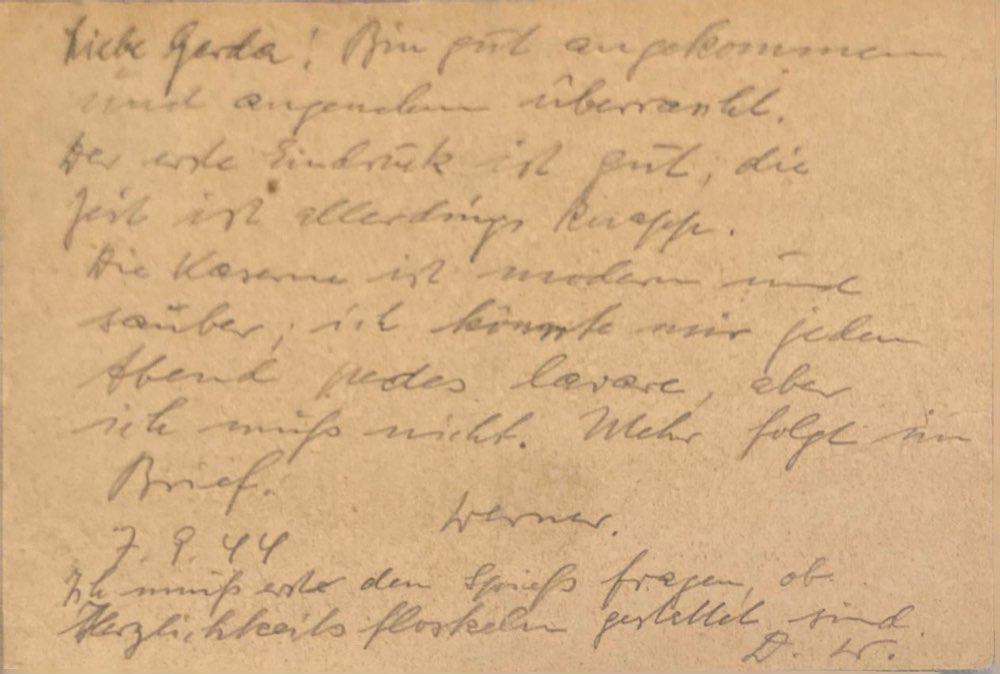 Liebe Gerda! Bin gut angekommen
und angenehm überrascht.
Der erste Eindruck ist gut, die
Zeit ist allerdings knapp.
Die Kaserne ist modern und
sauber; ich könnte mir jeden
Abend pedes lavare, aber
ich muß nicht. Mehr folgt im
Brief.
Werner.
7. 9. 44
Ich muß erst den Spieß fragen, ob
Herzlichkeitsfloskeln gestattet sind.
D. W.